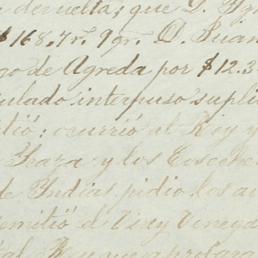 devuelta; que D.
$168,, 7 rs. 9 gs. D. Juan
go de Agreda por $12.3
ulado interpuso supli
itió: ocurrió al Rey y
Icaza y los Coseche
de Indias pidio los au
emitió el Virey Venega